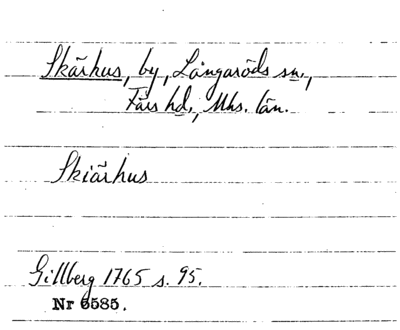 Skärhus, by, Långaröds sn.,
Färs hd., Mhs. län.
Skiärhus
Gillberg 1765 s. 95.
Nr 6585.